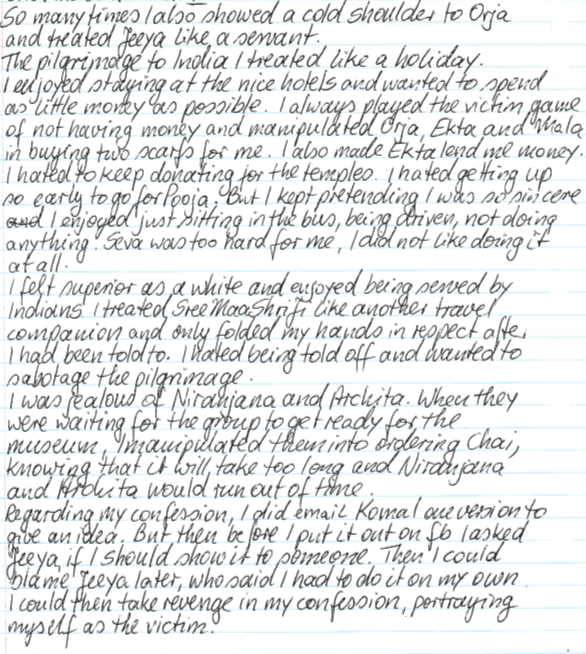 So many times I also showed a cold shoulder to Orja
and treated Jeeya like a servant.
The pilgrimage to India I treated like a holiday.
I enjoyed staying at the nice hotels and wanted to spend
as little money as possible. I always played the victim game
of not having money and manipulated Orja, Ekta and Mala
in buying two scarfs for me. I also made Ekta lend me money.
I hated to keep donating for the temples. I hated getting up
so early to go for Pooja. But I kept pretending I was so sincere
and I enjoyed just sitting in the bus, being driven, not doing
anything. Seva was too hard for me, I did not like doing it
at all.
I felt superior as a white and enjoyed being served by
Indians. I treated Sree Maa Shrifi like another travel
companion and only folded my hands in respect after
I had been told to. I hated being told off and wanted to
sabotage the pilgrimage.
I was jealous of Niranjana and Archita. When they
were waiting for the group to get ready for the
museum, I manipulated them into ordering Chai,
knowing that it will take too long and Niranjana
and Archita would run out of time.
Regarding my confession, I did email Komal one version to
give an idea. But then before I put it out on fb I asked
Jeeya, if I should show it to someone. Then I could
blame Jeeya later, who said I had to do it on my own.
I could then take revenge in my confession, portraying
myself as the victim.